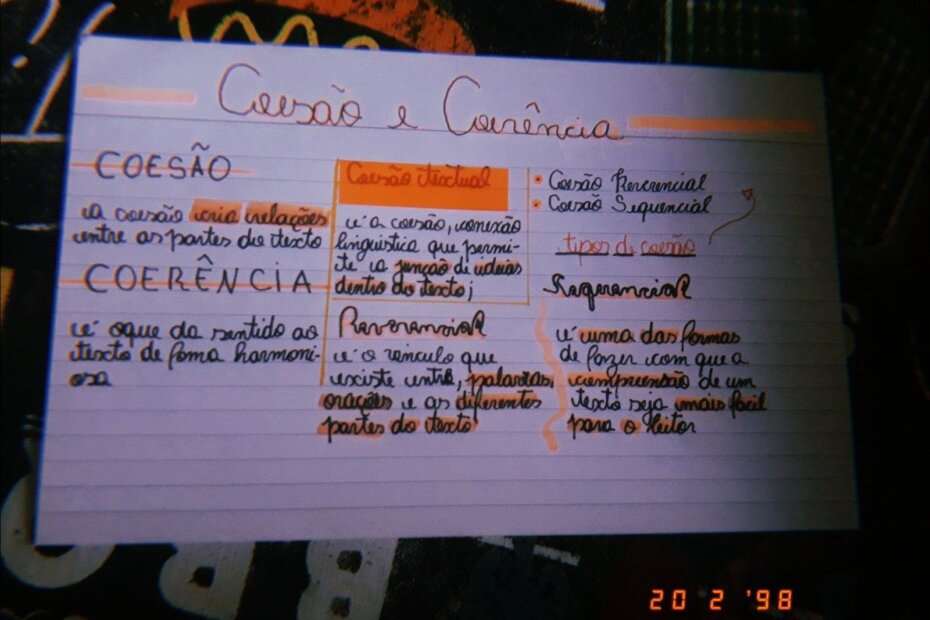 Coesão e Coerência
COESÃO
a coesão cria relações
entre as partes do texto
COERÊNCIA
é oque da sentido ao
texto de foma harmoni-
osa
Coesão textual
é a coesão, conexão
linguística que permi-
te a junção de ideias
dentro do texto;
Reverencial
é o vinculo que
existe entre, palavras,
orações e as diferentes
partes do texto
• Coesão Reverencial
• Coesão Sequencial
tipos de coesão
Sequencial
é uma das formas
de fazer com que a
compreensão de um
texto seja mais facil
para o leitor
20 2 '98